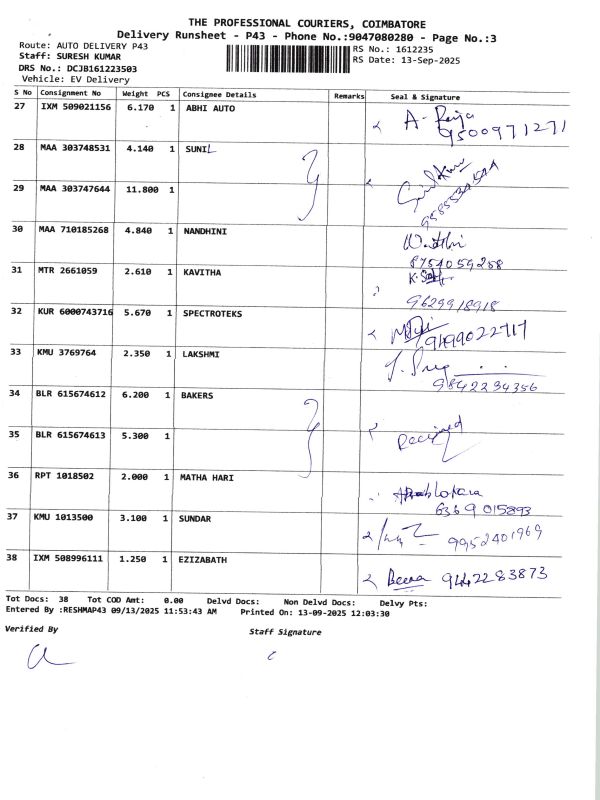 THE PROFESSIONAL COURIERS, COIMBATORE
Delivery Runsheet - P43 - Phone No.:9047080280 - Page No.:3
Route: AUTO DELIVERY P43
Staff: SURESH KUMAR
DRS No.: DCJB161223503
Vehicle: EV Delivery
RS No.: 1612235
RS Date: 13-Sep-2025
S No Consignment No Weight PCS Consignee Details Remarks Seal & Signature
27 IXM 509021156 6.170 1 ABHI AUTO A- Raja
9500971271
28 MAA 303748531 4.140 1 SUNIL
29 MAA 303747644 11.800 1
30 MAA 710185268 4.840 1 NANDHINI
8754059258
31 MTR 2661059 2.610 1 KAVITHA
9629918918
32 KUR 6000743716 5.670 1 SPECTROTEKS
9199022717
33 KMU 3769764 2.350 1 LAKSHMI
9842234356
34 BLR 615674612 6.200 1 BAKERS
35 BLR 615674613 5.300 1 Received
36 RPT 1018502 2.000 1 MATHA HARI
6369015893
37 KMU 1013500 3.100 1 SUNDAR 9952401969
38 IXM 508996111 1.250 1 EZIZABATH Beena 9442283873
Tot Docs: 38 Tot COD Amt: 0.00 Delvd Docs: Non Delvd Docs: Delvy Pts:
Entered By :RESHMAP43 09/13/2025 11:53:43 AM Printed On: 13-09-2025 12:03:30
Verified By Staff Signature